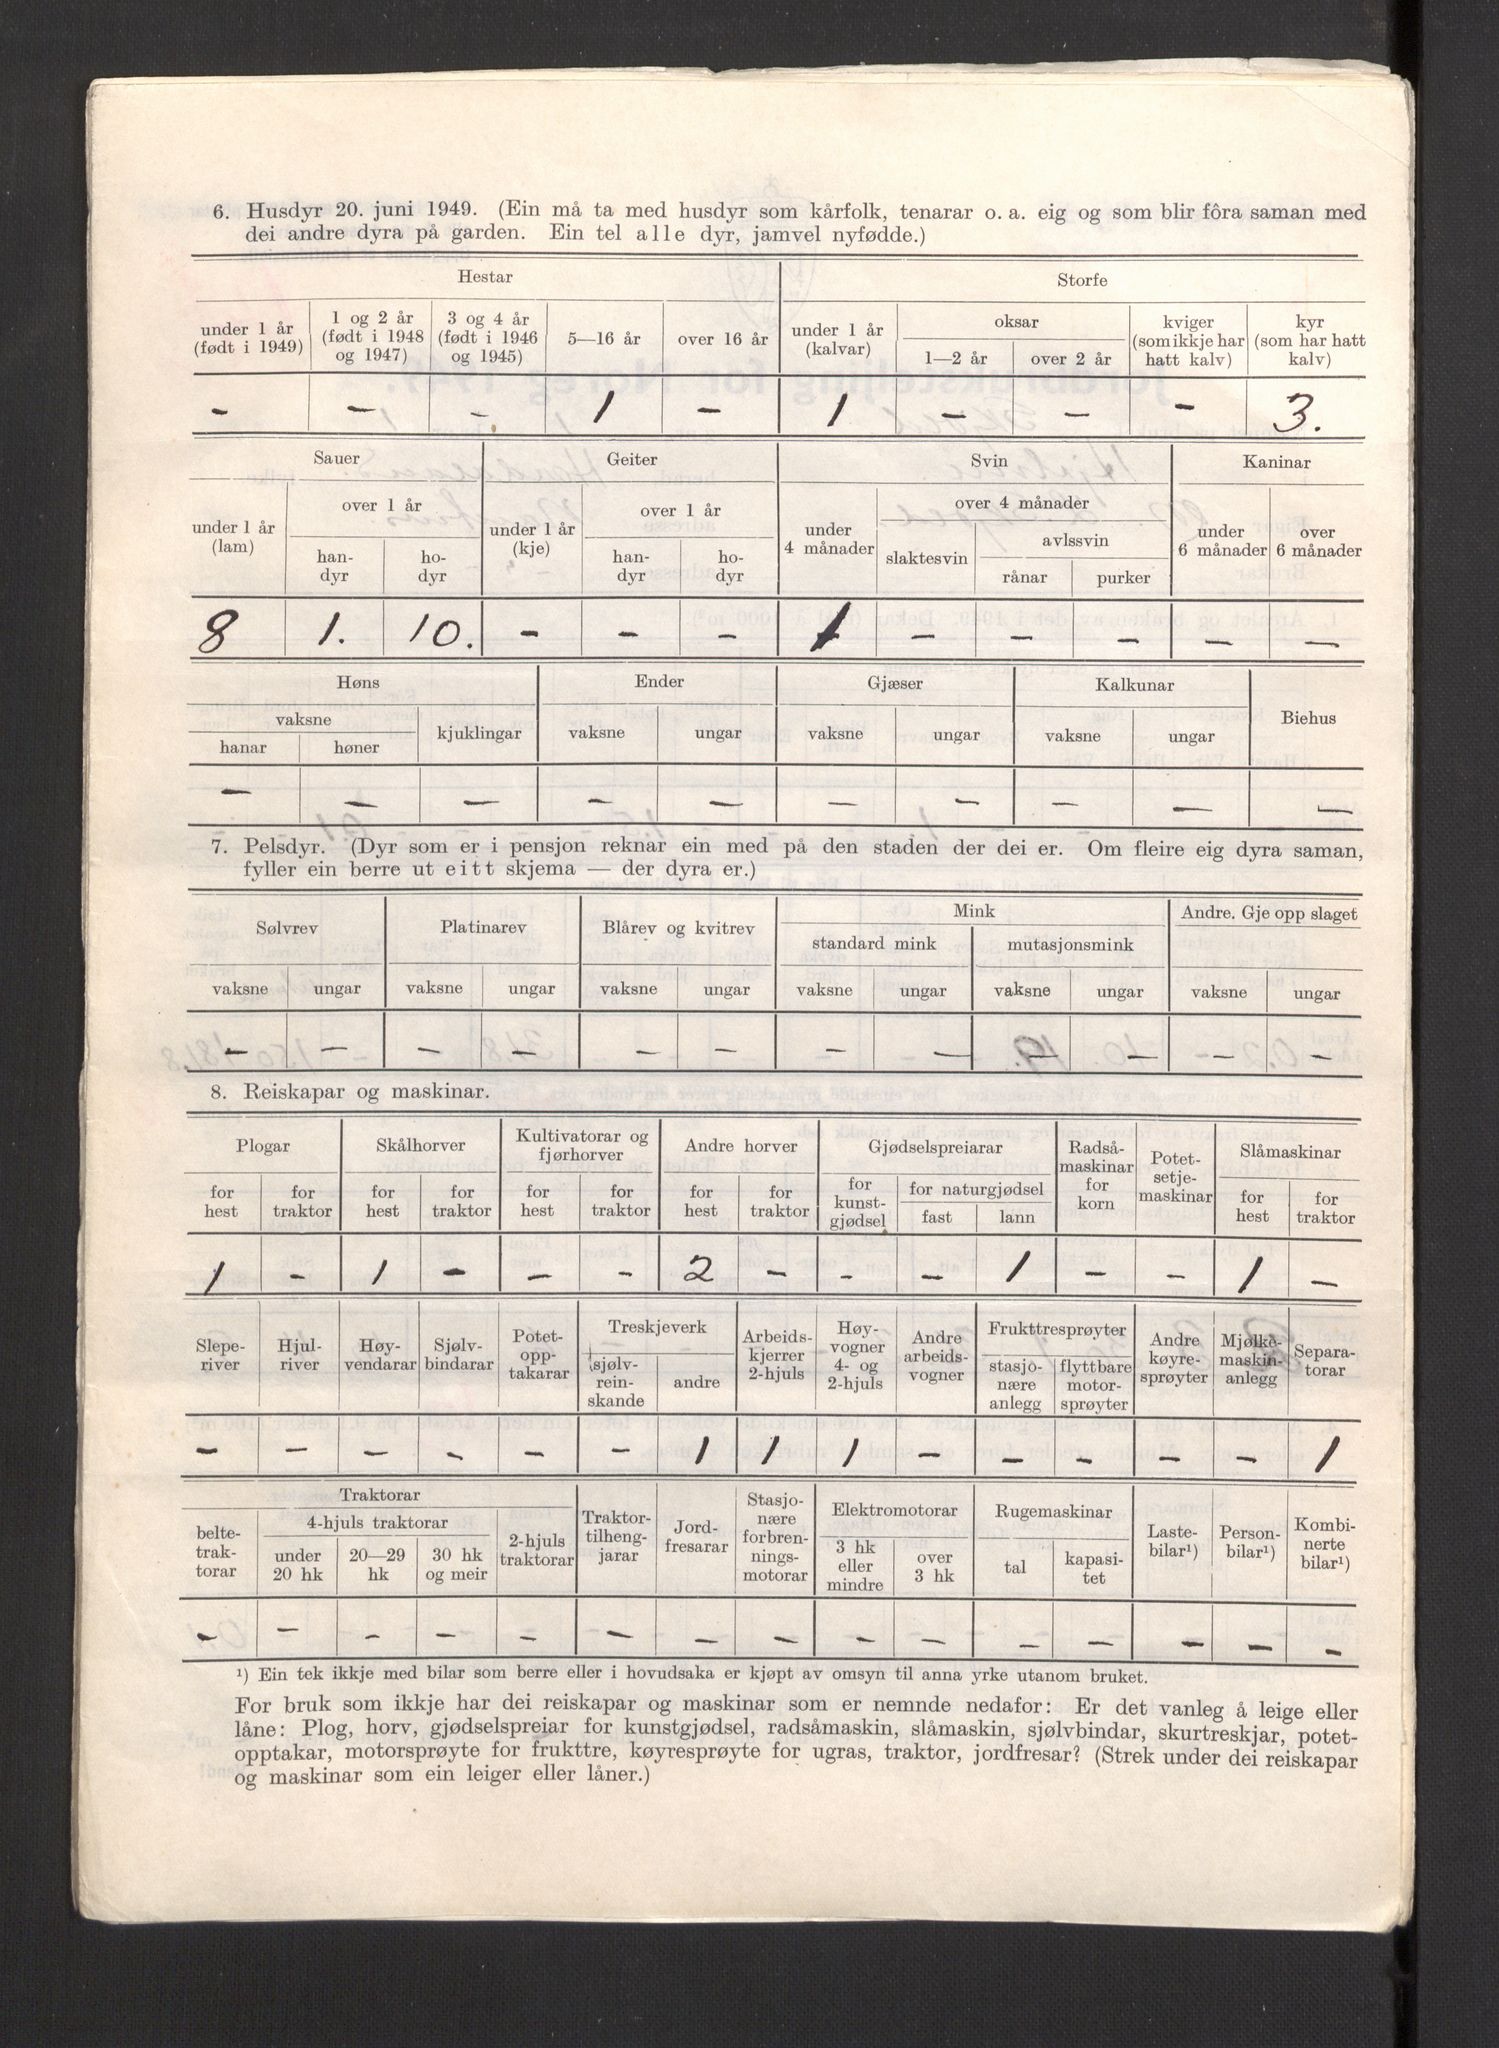 6. Husdyr 20. juni 1949. (Ein må ta med husdyr som kårfolk, tenarar o. a. eig og som blir fôra saman med
dei andre dyra på garden. Ein tel alle dyr, jamvel nyfødde.)
Hestar Storfe
under 1 år (født i 1949) 1 og 2 år (født i 1948 og 1947) 3 og 4 år (født i 1946 og 1945) 5—16 år over 16 år under 1 år (kalvar) oksar 1—2 år over 2 år kviger (som ikkje har hatt kalv) kyr (som har hatt kalv)
- - - 1 - 1 - - - 3.
Sauer Geiter Svin Kaninar
under 1 år (lam) over 1 år handyr hodyr under 1 år (kje) over 1 år handyr hodyr under 4 månader over 4 månader slaktesvin avlssvin rånar purker under 6 månader over 6 månader
8 1. 10. - - - 1 - - - - -
Høns Ender Gjæser Kalkunar Biehus
vaksne hanar høner kjuklingar vaksne ungar vaksne ungar vaksne ungar
- - - - - - - - - -
7. Pelsdyr. (Dyr som er i pensjon reknar ein med på den staden der dei er. Om fleire eig dyra saman,
fyller ein berre ut eitt skjema — der dyra er.)
Sølvrev Platinarev Blårev og kvitrev Mink Andre. Gje opp slaget
standard mink mutasjonsmink
vaksne ungar vaksne ungar vaksne ungar vaksne ungar vaksne ungar vaksne ungar
- - - - - - - - - - - -
8. Reiskapar og maskinar.
Plogar Skålhorver Kultivatorar og fjørhorver Andre horver Gjødselspreiarar Radsåmaskinar for korn Potetsetjemaskinar Slåmaskinar
for hest for traktor for hest for traktor for hest for traktor for hest for traktor for kunstgjødsel for naturgjødsel fast lann for hest for traktor
1 - 1 - - - 2 - - - 1 - - 1 -
Sleperiver Hjulriver Høyvendarar Sjølvbindarar Potetopptakarar Treskjeverk sjølvreinskande andre Arbeidskjerrer 2-hjuls Høyvogner 4- og 2-hjuls Andre arbeidsvogner Frukttresprøyter stasjonære anlegg flyttbare motorsprøyter Andre køyresprøyter Mjølkemaskinanlegg Separatorar
- - - - - - 1 1 1 - - - - - 1
Traktorar Traktortilhengjarar Jordfresarar Stasjonære forbrenningsmotorar Elektromotorar Rugemaskinar Lastebilar¹) Personbilar¹) Kombinerte bilar¹)
beltetraktorar 4-hjuls traktorar under 20 hk 20—29 hk 30 hk og meir 2-hjuls traktorar 3 hk eller mindre over 3 hk tal kapasitet
- - - - - - - - - - - - - - -
¹) Ein tek ikkje med bilar som berre eller i hovudsaka er kjøpt av omsyn til anna yrke utanom bruket.
For bruk som ikkje har dei reiskapar og maskinar som er nemnde nedafor: Er det vanleg å leige eller
låne: Plog, horv, gjødselspreiar for kunstgjødsel, radsåmaskin, slåmaskin, sjølvbindar, skurtreskjar, potet-
opptakar, motorsprøyte for frukttre, køyresprøyte for ugras, traktor, jordfresar? (Strek under dei reiskapar
og maskinar som ein leiger eller låner.)